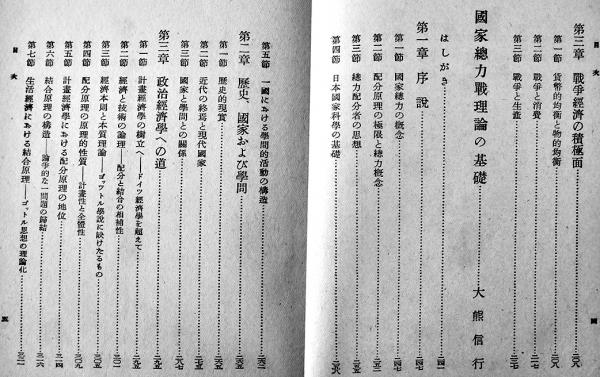 第三章 戰爭經濟の積極面……二〇八
第一節 貨幣的均衡と物的均衡……二〇八
第二節 戰爭と消費
第三節 戰爭と生產
國家總力戰理論の基礎 大熊信行
はしがき……二四一
第一章 序說
第一節 國家總力の概念
第二節 配分原理の極限と總力概念
第三節 總力配分者の思想
第四節 日本國家科學の基礎
四
目次
第五節 一國における學問的活動の構造
第二章 歷史、國家および學問
第一節 歷史的現實
第二節 近代の終焉と現代國家
第三節 國家と學問との關係
第三章 政治經濟學への道……二九五
第一節 計畫經濟學への樹立へ——ドイツ經濟學を超えて……二九五
第二節 經濟と技術の論理——配分と結合の相補性……三〇一
第三節 經濟本同と本質理論——ゴットル學說に缺けたるもの……三〇五
第四節 配分原理の原理的性質——計畫性と全體性……三〇九
第五節 計畫經濟學における配分原理の地位……三一四
第六節 結合原理の構造——論爭的な一問題の歸結……三一六
第七節 生活經濟における結合原理——ゴットル思想の理論化……三二一
目次
五